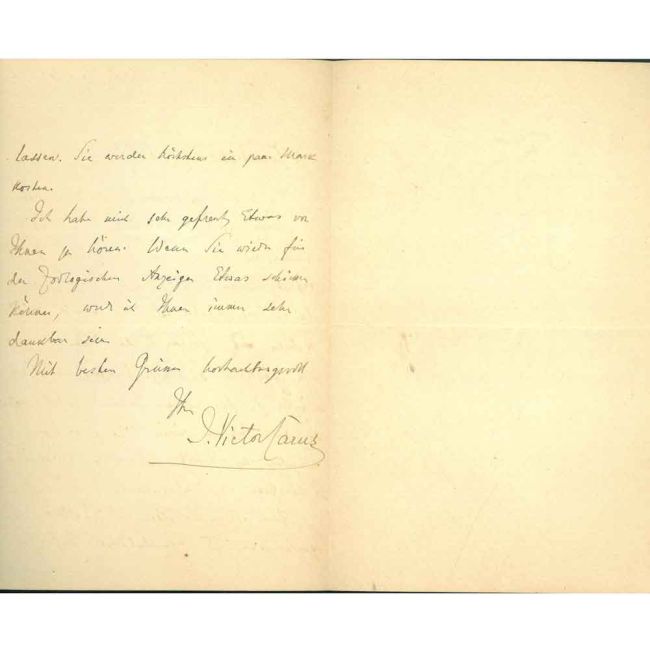 lassen. Sie werden höchstens ein paar Mark
kosten.
Ich habe mich sehr gefreut, Etwas von
Ihnen zu hören. Wenn Sie wieder für
den Zoologischen Anzeiger Etwas schicken
können, werde ich Ihnen immer sehr
dankbar sein.
Mit besten Grüssen hochachtungsvoll
Ihr
J. Victor Carus